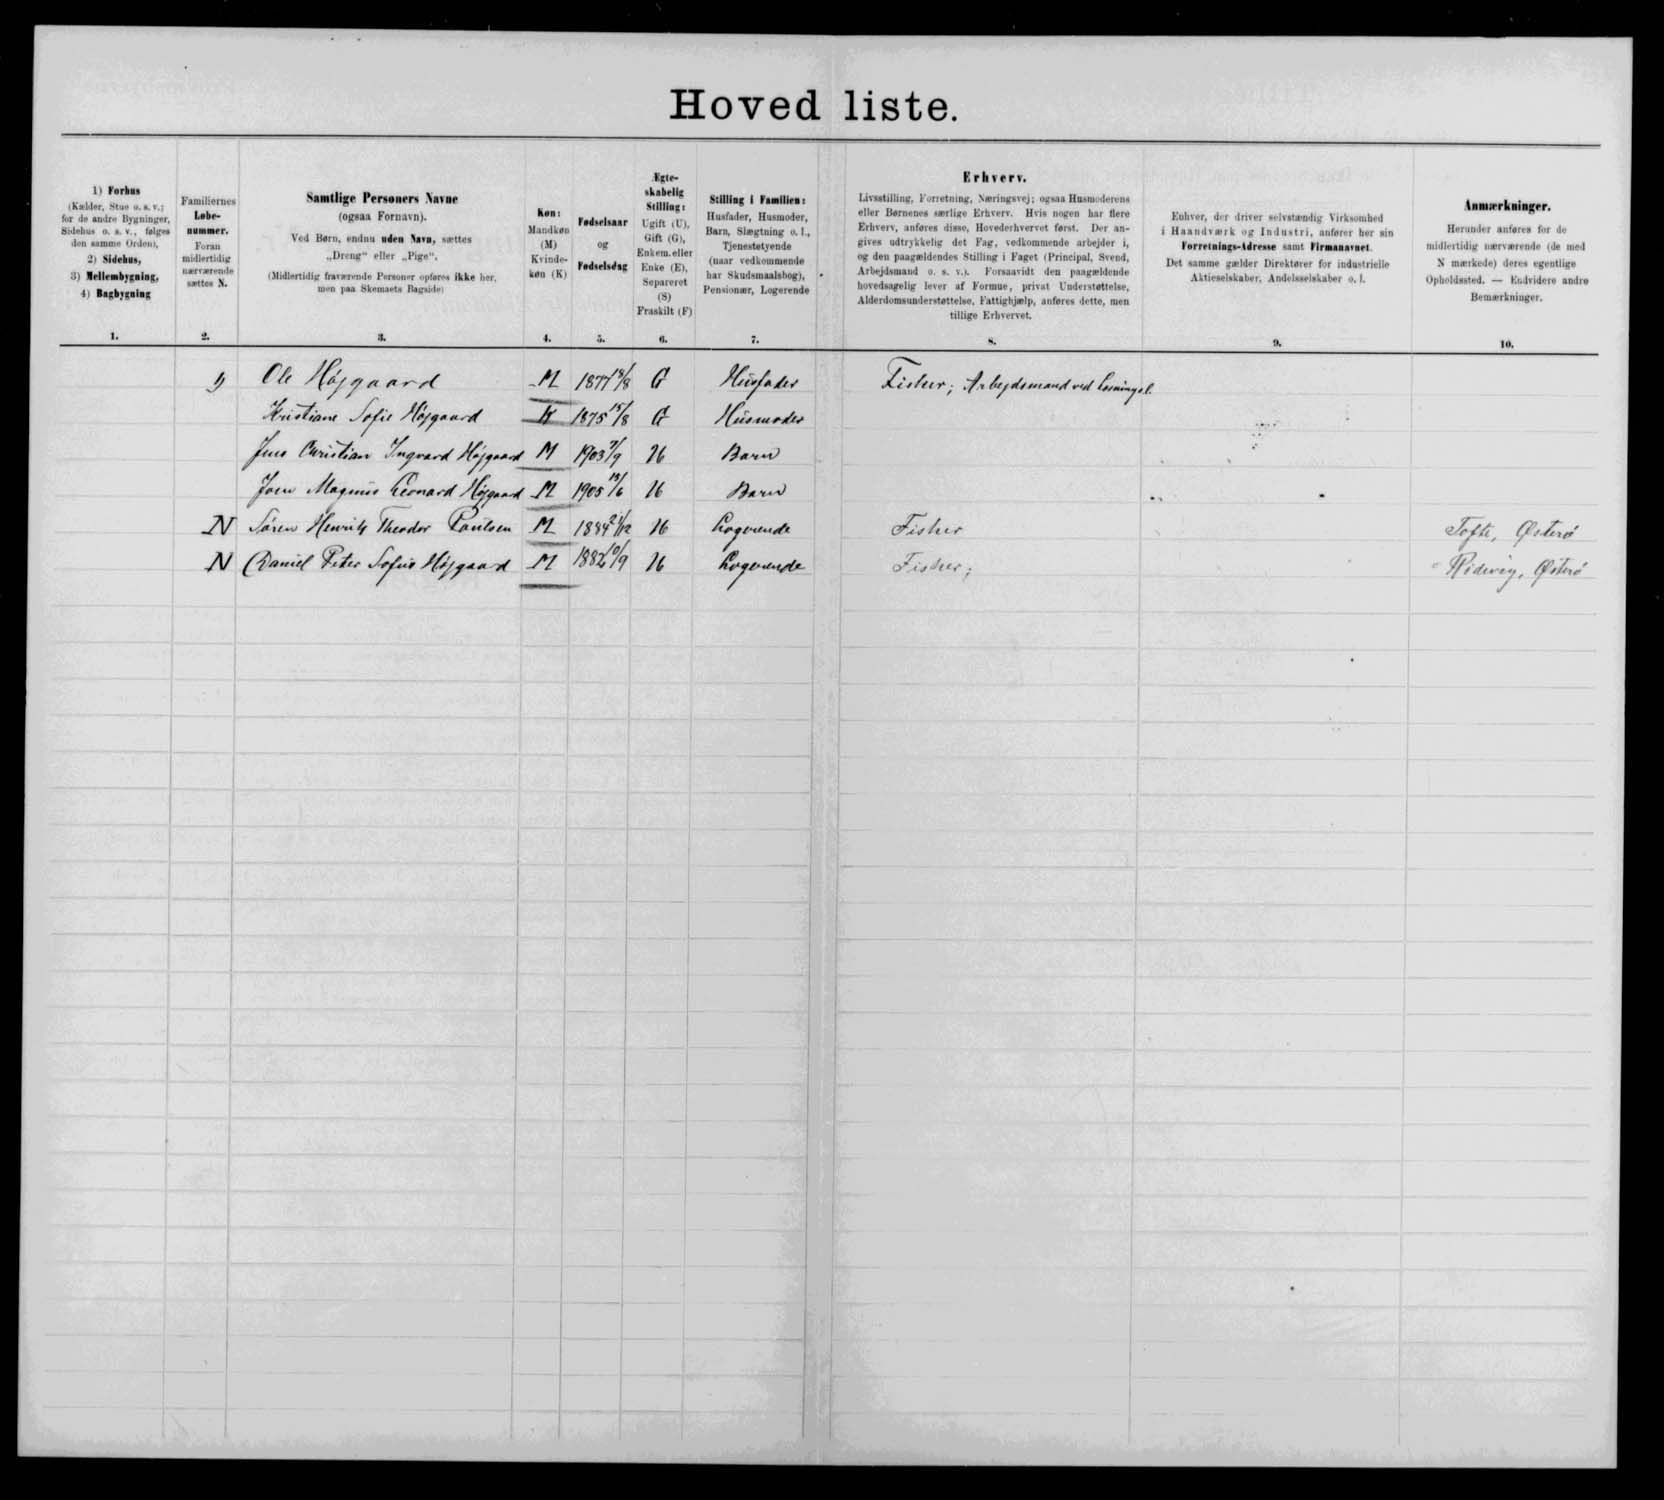 Hoved liste.
1) Forhus
(Kælder, Stue o. s. v.;
for de andre Bygninger,
Sidehus o. s. v., følges
den samme Orden),
2) Sidehus,
3) Mellembygning,
4) Bagbygning
1.
Familiernes
Løbe-
nummer.
Foran
midlertidig
nærværende
sættes N.
2.
Samtlige Personers Navne
(ogsaa Fornavn).
Ved Børn, endnu uden Navn, sættes
„Dreng" eller „Pige".
(Midlertidig fraværende Personer opføres ikke her,
men paa Skemaets Bagside)
3.
Køn:
Mandkøn
(M)
Kvinde-
køn (K)
4.
Fødselsaar
og
Fødselsdag
5.
Ægte-
skabelig
Stilling:
Ugift (U),
Gift (G),
Enkem. eller
Enke (E),
Separeret
(S)
Fraskilt (F)
6.
Stilling i Familien:
Husfader, Husmoder,
Barn, Slægtning o. l.,
Tjenestetyende
(naar vedkommende
har Skudsmaalsbog),
Pensionær, Logerende
7.
Erhverv.
Livsstilling, Forretning, Næringsvej; ogsaa Husmoderens
eller Børnenes særlige Erhverv. Hvis nogen har flere
Erhverv, anføres disse, Hovederhvervet først. Der an-
gives udtrykkelig det Fag, vedkommende arbejder i,
og den paagældendes Stilling i Faget (Principal, Svend,
Arbejdsmand o. s. v.). Forsaavidt den paagældende
hovedsagelig lever af Formue, privat Understøttelse,
Alderdomsunderstøttelse, Fattighjælp, anføres dette, men
tillige Erhvervet.
8.
Enhver, der driver selvstændig Virksomhed
i Haandværk og Industri, anfører her sin
Forretnings-Adresse samt Firmanavnet.
Det samme gælder Direktører for industrielle
Aktieselskaber, Andelsselskaber o. l.
9.
Anmærkninger.
Herunder anføres for de
midlertidig nærværende (de med
N mærkede) deres egentlige
Opholdssted. — Endvidere andre
Bemærkninger.
10.
Ole Højgaard M 1877 G Husfader Fisker; Arbejdsmand ved
Kristiane Sofie Højgaard K 1875 15/8 G Husmoder
Jens Christian Ingvard Højgaard M 1903 7/9 U Barn
Joen Magnus Leonard Højgaard M 1905 U Barn
N Søren Henrik Theodor Paulsen M 1884 21/12 U Logerende Fisker Tofte, Østerø
N Daniel Peter Sofus Højgaard M 1882 10/9 U Logerende Fisker; Østerø